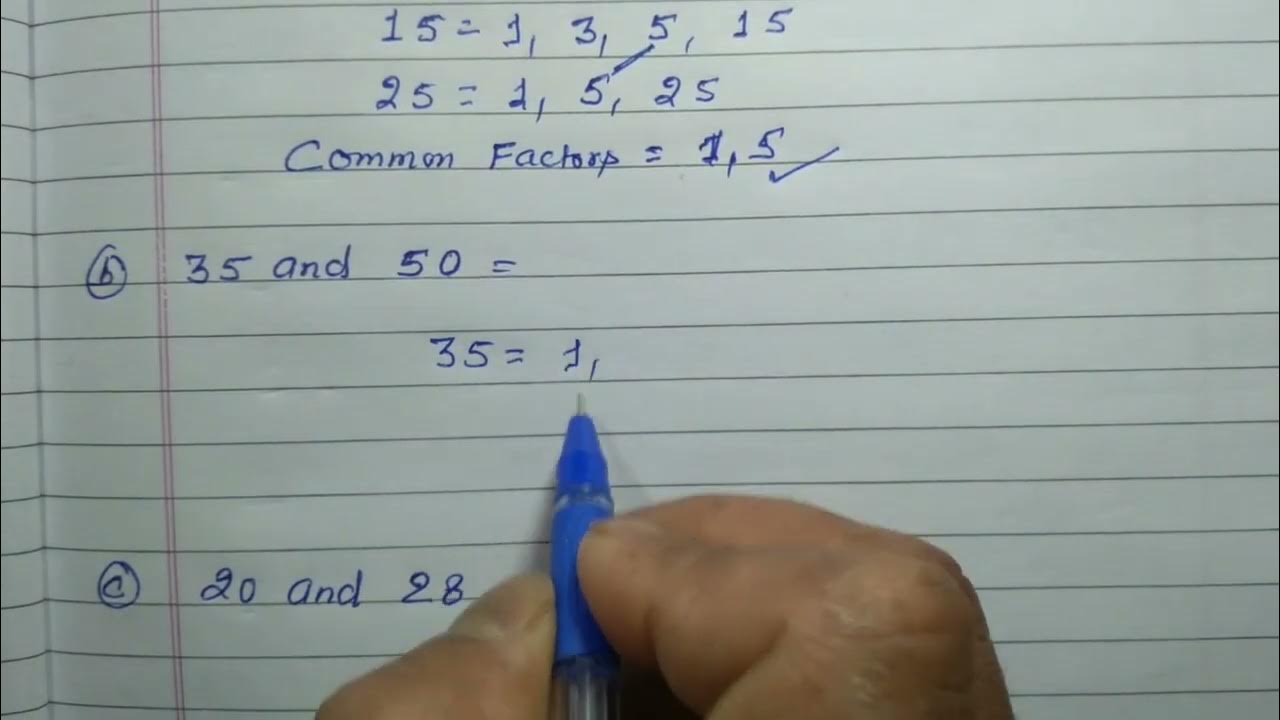 15 = 1, 3, 5, 15
25 = 1, 5, 25
Common Factors = 1, 5
(b) 35 and 50 =
35 = 1,
(c) 20 and 28